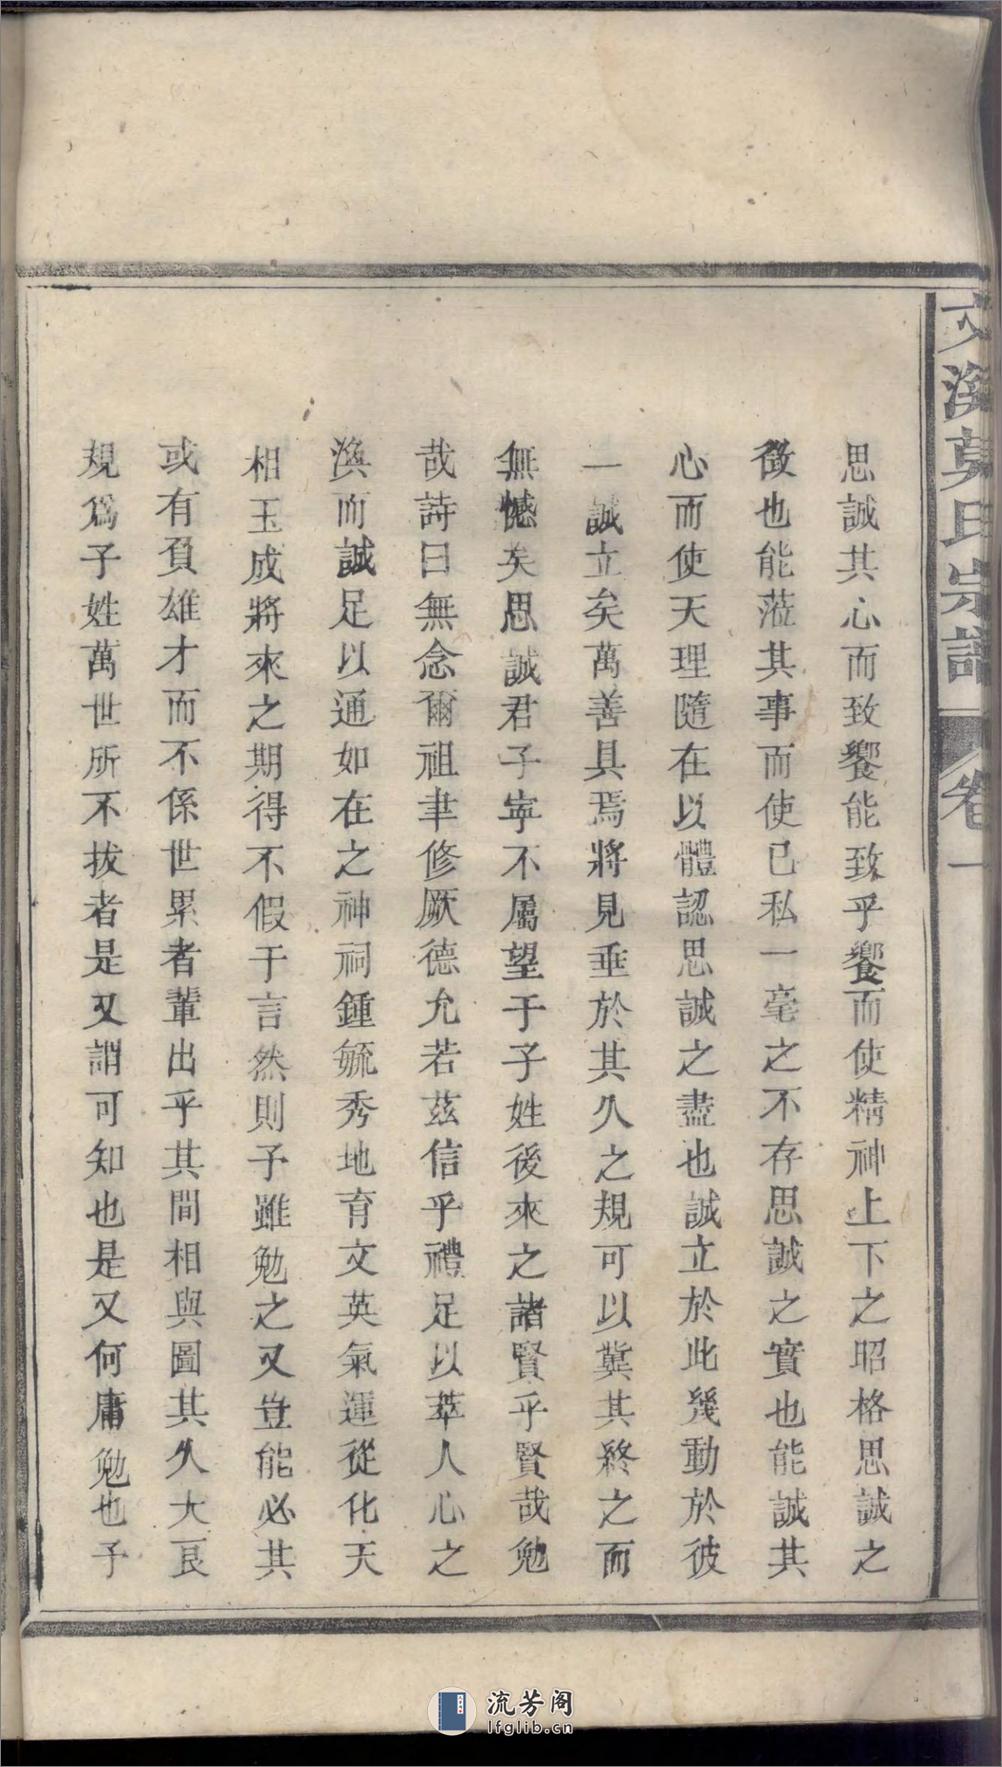 文漢莫氏宗譜 卷一
思誠其心而致饗能致乎饗而使精神上下之昭格思誠之
徵也能蒞其事而使已私一毫之不存思誠之實也能誠其
心而使天理隨在以體認思誠之盡也誠立於此幾動於彼
一誠立矣萬善具焉將見垂於其久之規可以冀其終之而
無憾矣思誠君子寧不屬望于子姓後來之諸賢乎賢哉勉
哉詩曰無念爾祖聿修厥德允若茲信乎禮足以萃人心之
渙而誠足以通如在之神祠鍾毓秀地育文英氣運從化天
相玉成將來之期得不假于言然則予雖勉之又豈能必其
或有負雄才而不係世累者輩出乎其間相與圖其久大良
規爲子姓萬世所不拔者是又謂可知也是又何庸勉也予
流芳阁
lfglib.cn